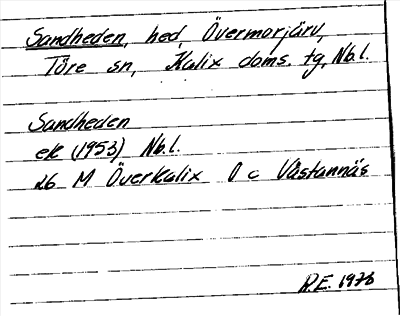 Sandheden, hed, Övermorjärv,
Töre sn, Kalix doms. tg, Nb.l.
Sandheden
ek (1953) Nb.l.
26 M Överkalix O c Västannäs
R.E. 1976